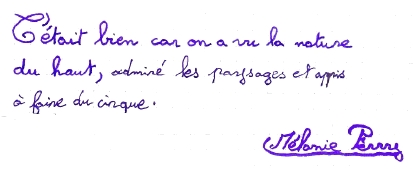 C'était bien car on a vu la nature
du haut, admiré les paysages et appris
à faire du cirque.
Mélanie Perry